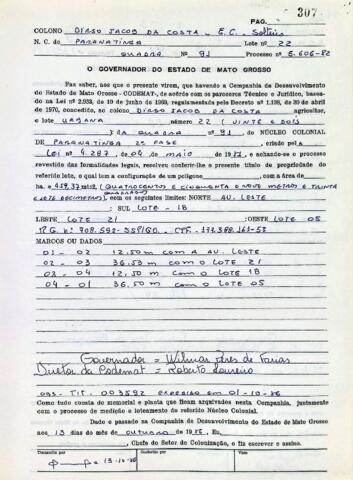 PAG. 307
COLONO DIRSO JACOB DA COSTA - E.C. Solteiro
N. C. do PARANATINGA Lote nº 22
QUADRA Nº 91 Processo nº 5.606-82
O GOVERNADOR DO ESTADO DE MATO GROSSO
Faz saber, aos que o presente virem, que havendo a Companhia de Desenvolvimento
do Estado de Mato Grosso - CODEMAT, de acôrdo com os pareceres Técnico e Jurídico, basea-
do na Lei nº 2.933, de 10 de junho de 1969, regulamentada pelo Decreto nº 1.138, de 30 de abril
de 1970, concedido, ao colono DIRSO JACOB DA COSTA agricultor,
o lote URBANO número 22 (VINTE E DOIS
) da QUADRA nº 91. DO NÚCLEO COLONIAL
DE PARANATINGA 2ª FASE, criado pela
Lei nº 4.287, de 04 de maio de 1981, e achando-se o processo
revestido das formalidades legais, resolveu conferir-lhe o presente título de propriedade do
referido lote, o qual tem a configuração de um polígono, com a área de
ha. e 459,37 mts2, (QUATROCENTOS E CINQUENTA E NOVE METROS E TRINTA
E SETE DECIMETROS QUADRADOS), com os seguintes limites: NORTE AV. LESTE
: SUL LOTE - 18
LESTE LOTE 21 : OESTE LOTE 05
R.G. nº 708.592-SSP/GO. CPF.
MARCOS OU DADOS
01 - 02 12,50 m COM A AV. LESTE
02 - 03 36,53 m COM O LOTE 21
03 - 04 12,50 m COM O LOTE 18
04 - 01 36,50 m COM O LOTE 05
Governador = Wilmar Peres de Farias
Diretor da Codemat = Roberto Loureiro
OBS - TIT. 093592 EXPEDIDO EM 01-10-86
Como tudo consta do memorial e planta que ficam arquivados nesta Companhia, juntamente
com o processo de medição e loteamento do referido Núcleo Colonial.
Dado e passado na Companhia de Desenvolvimento do Estado de Mato Grosso
aos 13 dias do mês de outubro de 1986, Eu,
Chefe do Setor de Colonização, o fiz escrever e assino.
Transcrito por Conferido por Visto
13-10-86